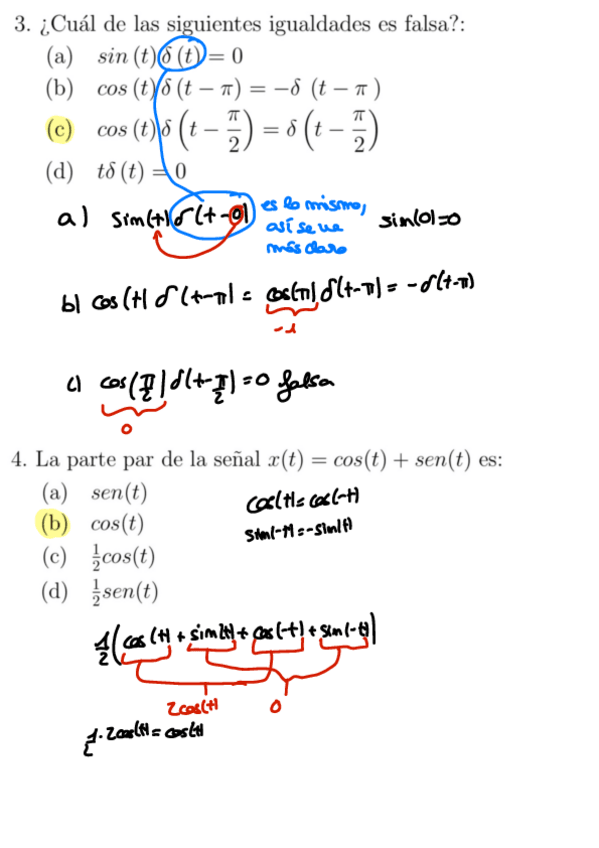 3. ¿Cuál de las siguientes igualdades es falsa?:
(a) sin (t) δ (t) = 0
(b) cos (t) δ (t − π) = −δ (t − π)
(c) cos (t) δ (t − π/2) = δ (t − π/2)
(d) tδ (t) = 0
a) sin(t) δ(t-0) es lo mismo, así se ve más claro sin(0)=0
b) cos(t) δ(t-π) = cos(π) δ(t-π) = -δ(t-π)
-1
c) cos(π/2) δ(t-π/2) = 0 falsa
0
4. La parte par de la señal x(t) = cos(t) + sen(t) es:
(a) sen(t)
(b) cos(t)
(c) ½cos(t)
(d) ½sen(t)
cos(t) = cos(-t)
sin(-t) = -sin(t)
1/2 (cos(t) + sin(t) + cos(-t) + sin(-t))
2cos(t) 0
1/2 · 2cos(t) = cos(t)